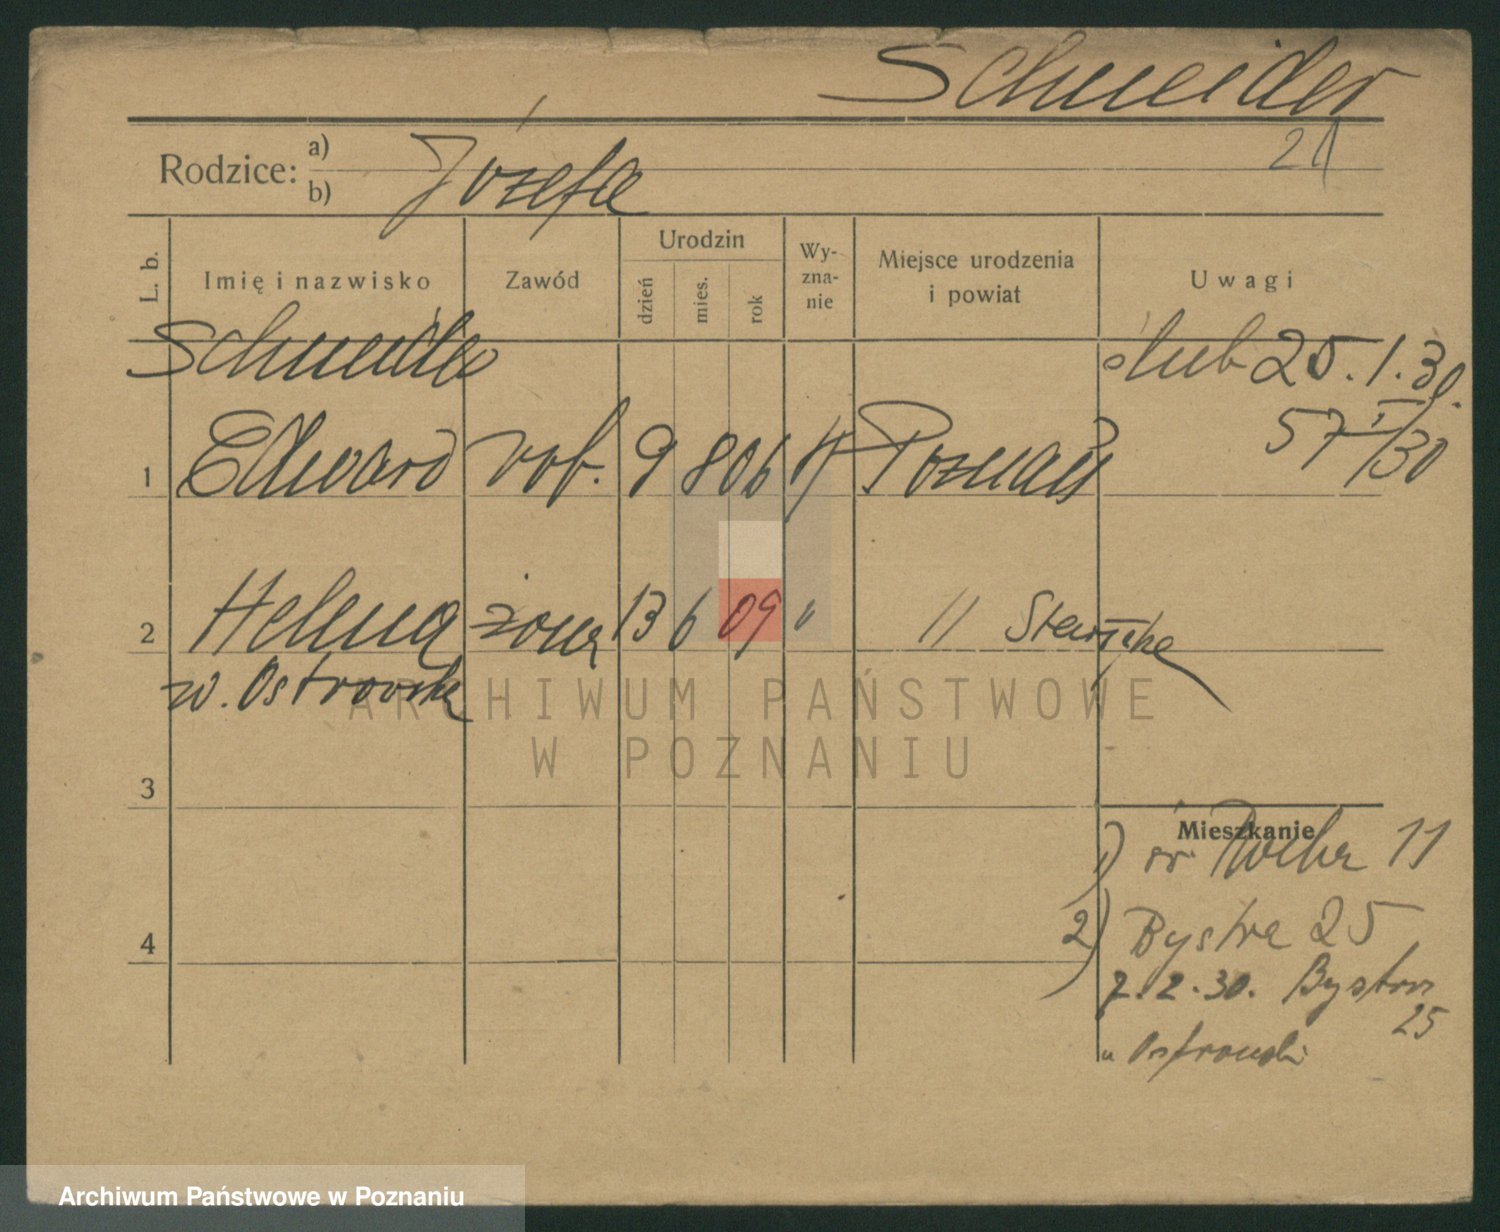 Schneider
21
Rodzice: a)
b) Józefa
L. b. Imię i nazwisko Zawód Urodzin dzień mies. rok Wy-zna-nie Miejsce urodzenia i powiat Uwagi
Schneider ślub 25.1.30.
57/30
1 Edward rob. 9 8 06 Poznań
2 Helena żona 13 6 09 " "
w. Ostrowska
ARCHIWUM PAŃSTWOWE
W POZNANIU
3
Mieszkanie
1) 11
4
2) Bystra 25
7.2.30. Bystra
25
u Ostrowski
Archiwum Państwowe w Poznaniu